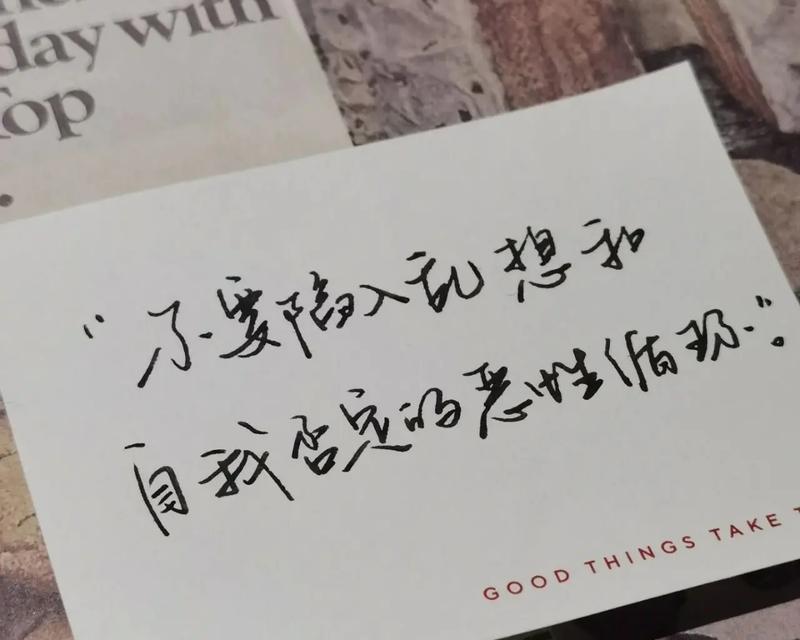 day with
Top
“不要陷入乱想和
自我否定的恶性循环”。
GOOD THINGS TAKE